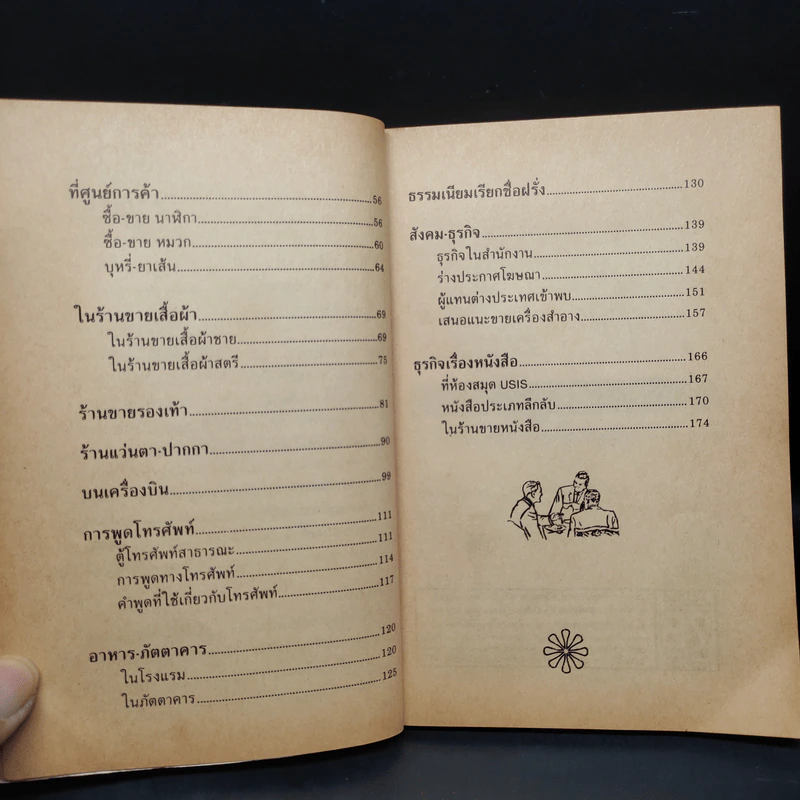 ที่ศูนย์การค้า........................................56
ซื้อ-ขาย นาฬิกา........................................56
ซื้อ-ขาย หมวก........................................60
บุหรี่-ยาเส้น........................................64
ในร้านขายเสื้อผ้า........................................69
ในร้านขายเสื้อผ้าชาย........................................69
ในร้านขายเสื้อผ้าสตรี........................................75
ร้านขายรองเท้า........................................81
ร้านแว่นตา-ปากกา........................................90
บนเครื่องบิน........................................99
การพูดโทรศัพท์........................................111
ตู้โทรศัพท์สาธารณะ........................................111
การพูดทางโทรศัพท์........................................114
คำพูดที่ใช้เกี่ยวกับโทรศัพท์........................................117
อาหาร-ภัตตาคาร........................................120
ในโรงแรม........................................120
ในภัตตาคาร........................................125
ธรรมเนียมเรียกชื่อฝรั่ง........................................130
สังคม-ธุรกิจ........................................139
ธุรกิจในสำนักงาน........................................139
ร่างประกาศโฆษณา........................................144
ผู้แทนต่างประเทศเข้าพบ........................................151
เสนอแนะขายเครื่องสำอาง........................................157
ธุรกิจเรื่องหนังสือ........................................166
ที่ห้องสมุด USIS........................................167
หนังสือประเภทลึกลับ........................................170
ในร้านขายหนังสือ........................................174